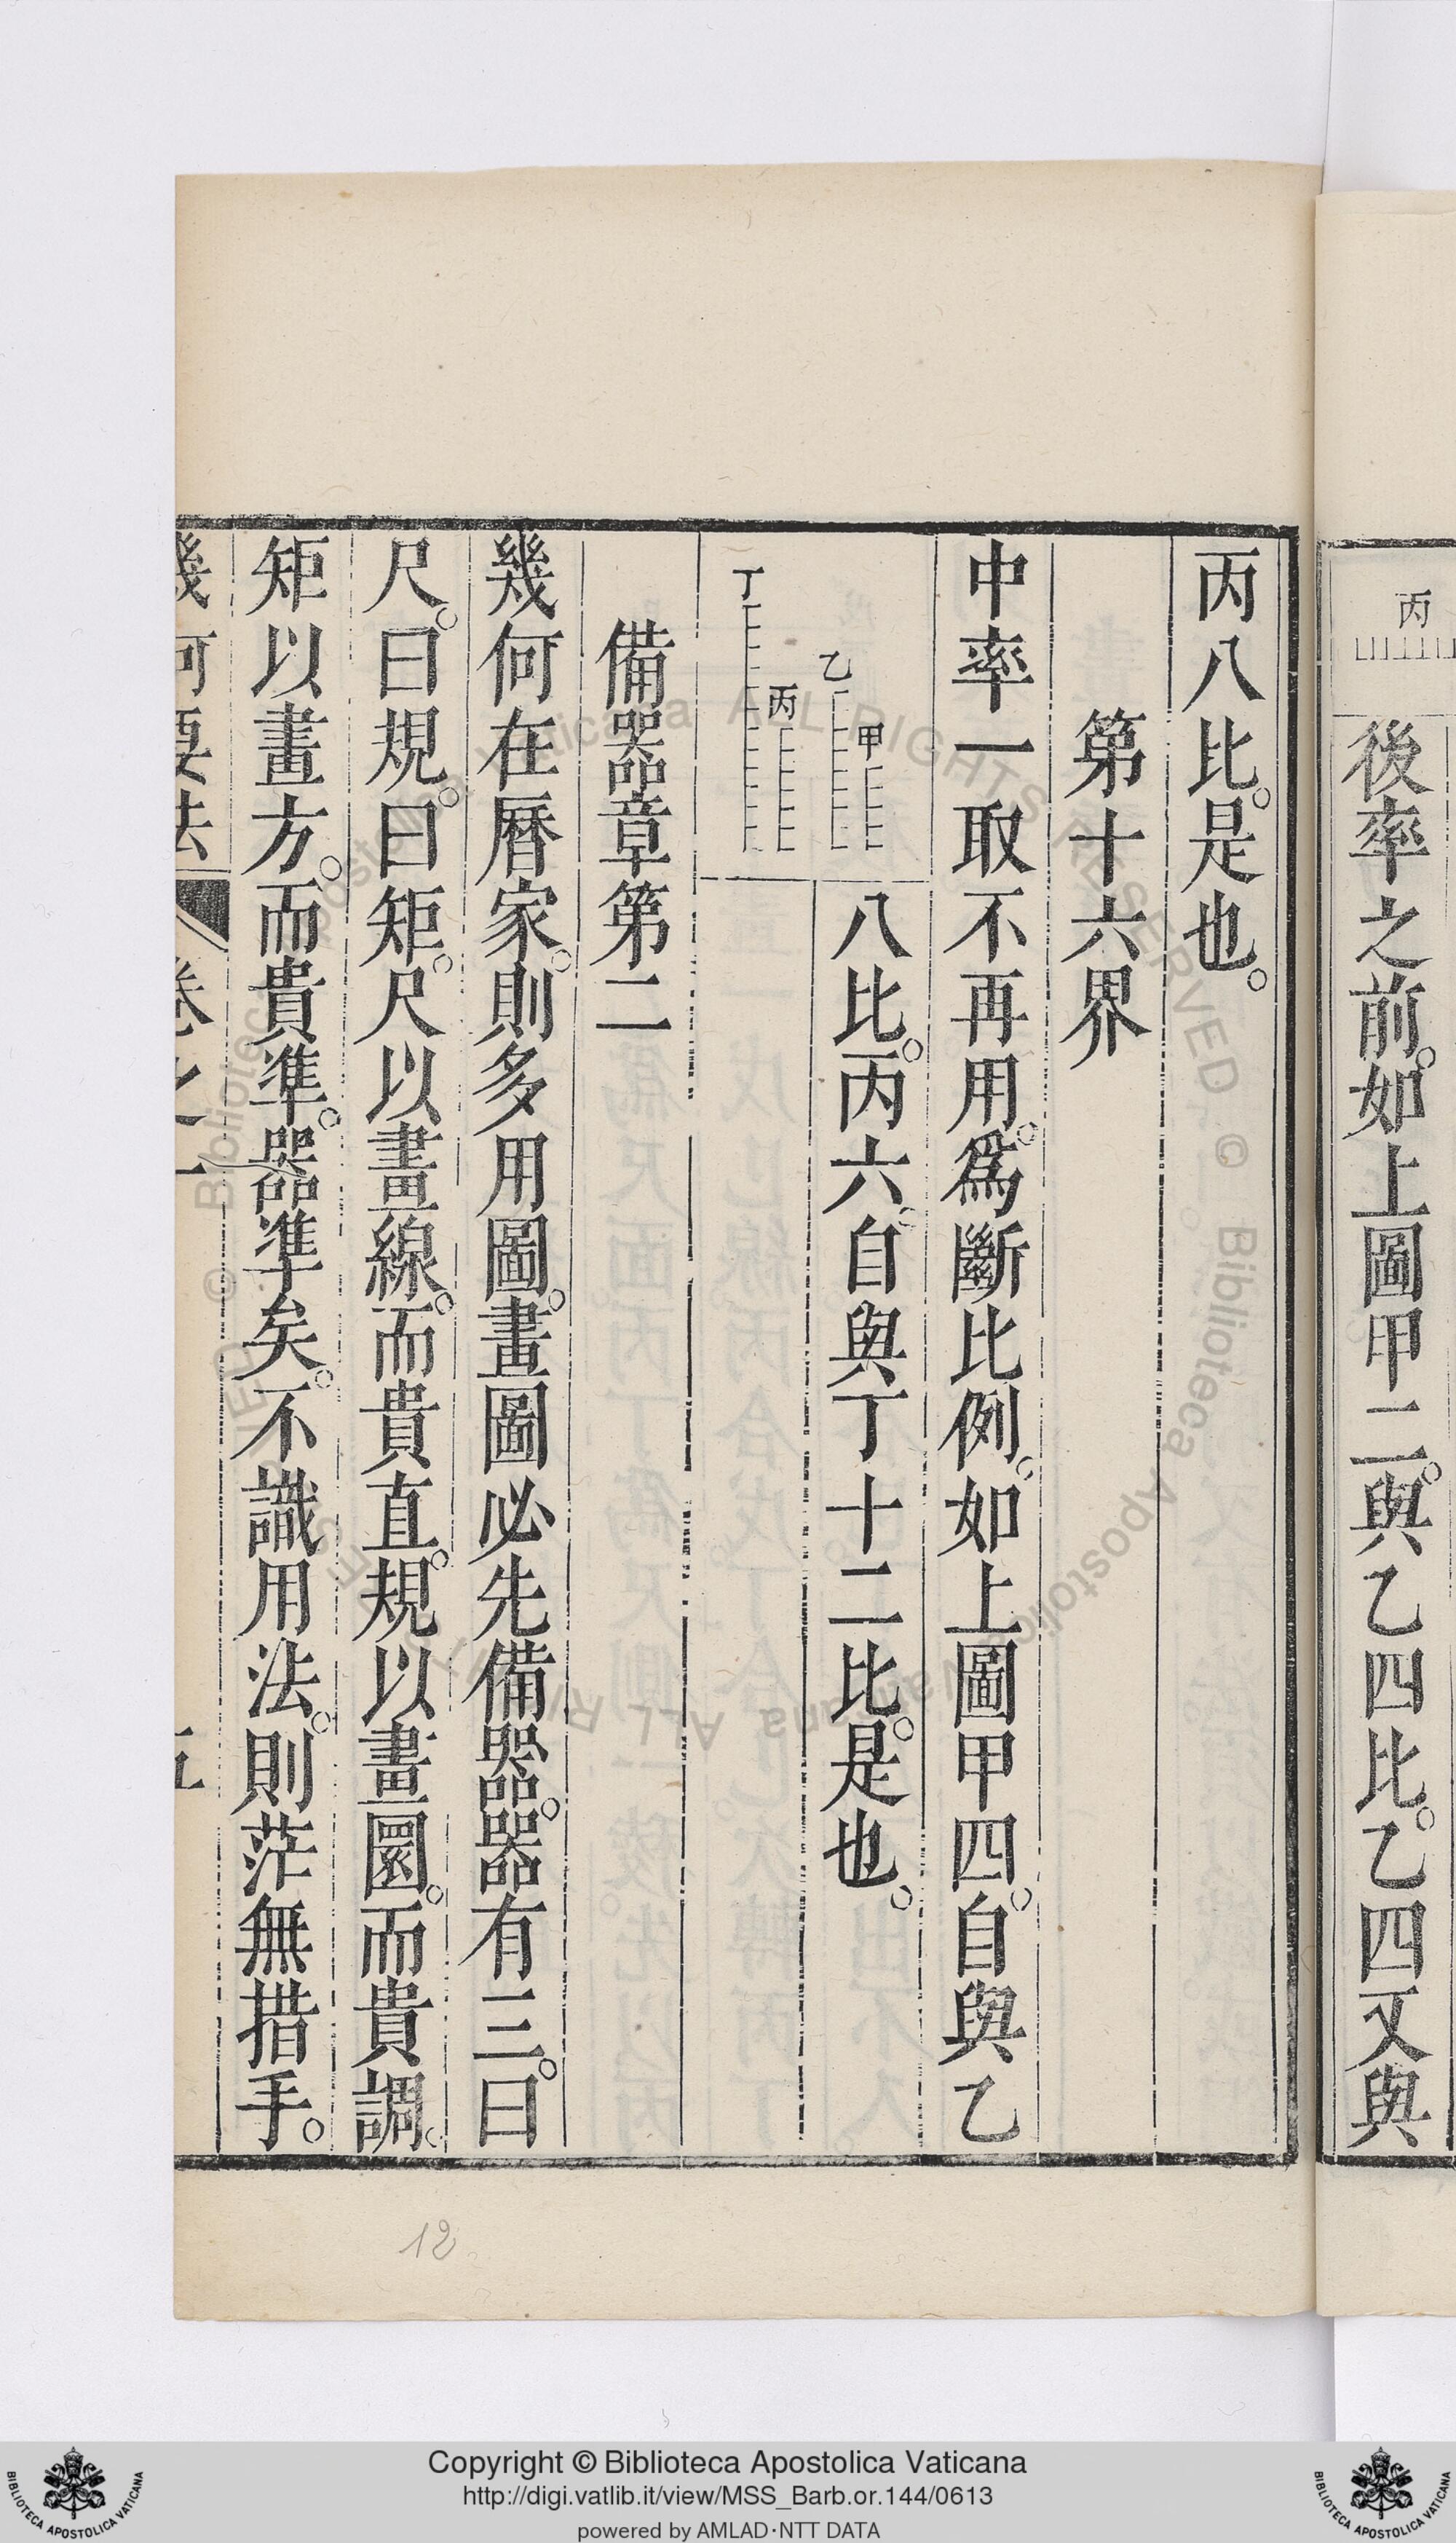 丙
後率之前。如上圖甲二。與乙四比。乙四又與
丙八比。是也。
第十六界
中率一取不再用。爲斷比例。如上圖甲四。自與乙
甲
乙
丙
丁
八比。丙六。自與丁十二比。是也。
備器章第二
幾何在曆家。則多用圖。畫圖必先備器。器有三。曰
尺。曰規。曰矩。尺以畫線。而貴直。規以畫圜。而貴調。
矩以畫方。而貴準。器準矣。不識用法。則茫無措手。
幾何要法 卷之一 五
12
Copyright © Biblioteca Apostolica Vaticana
http://digi.vatlib.it/view/MSS_Barb.or.144/0613
powered by AMLAD·NTT DATA
BIBLIOTECA APOSTOLICA VATICANA
BIBLIOTECA APOSTOLICA VATICANA